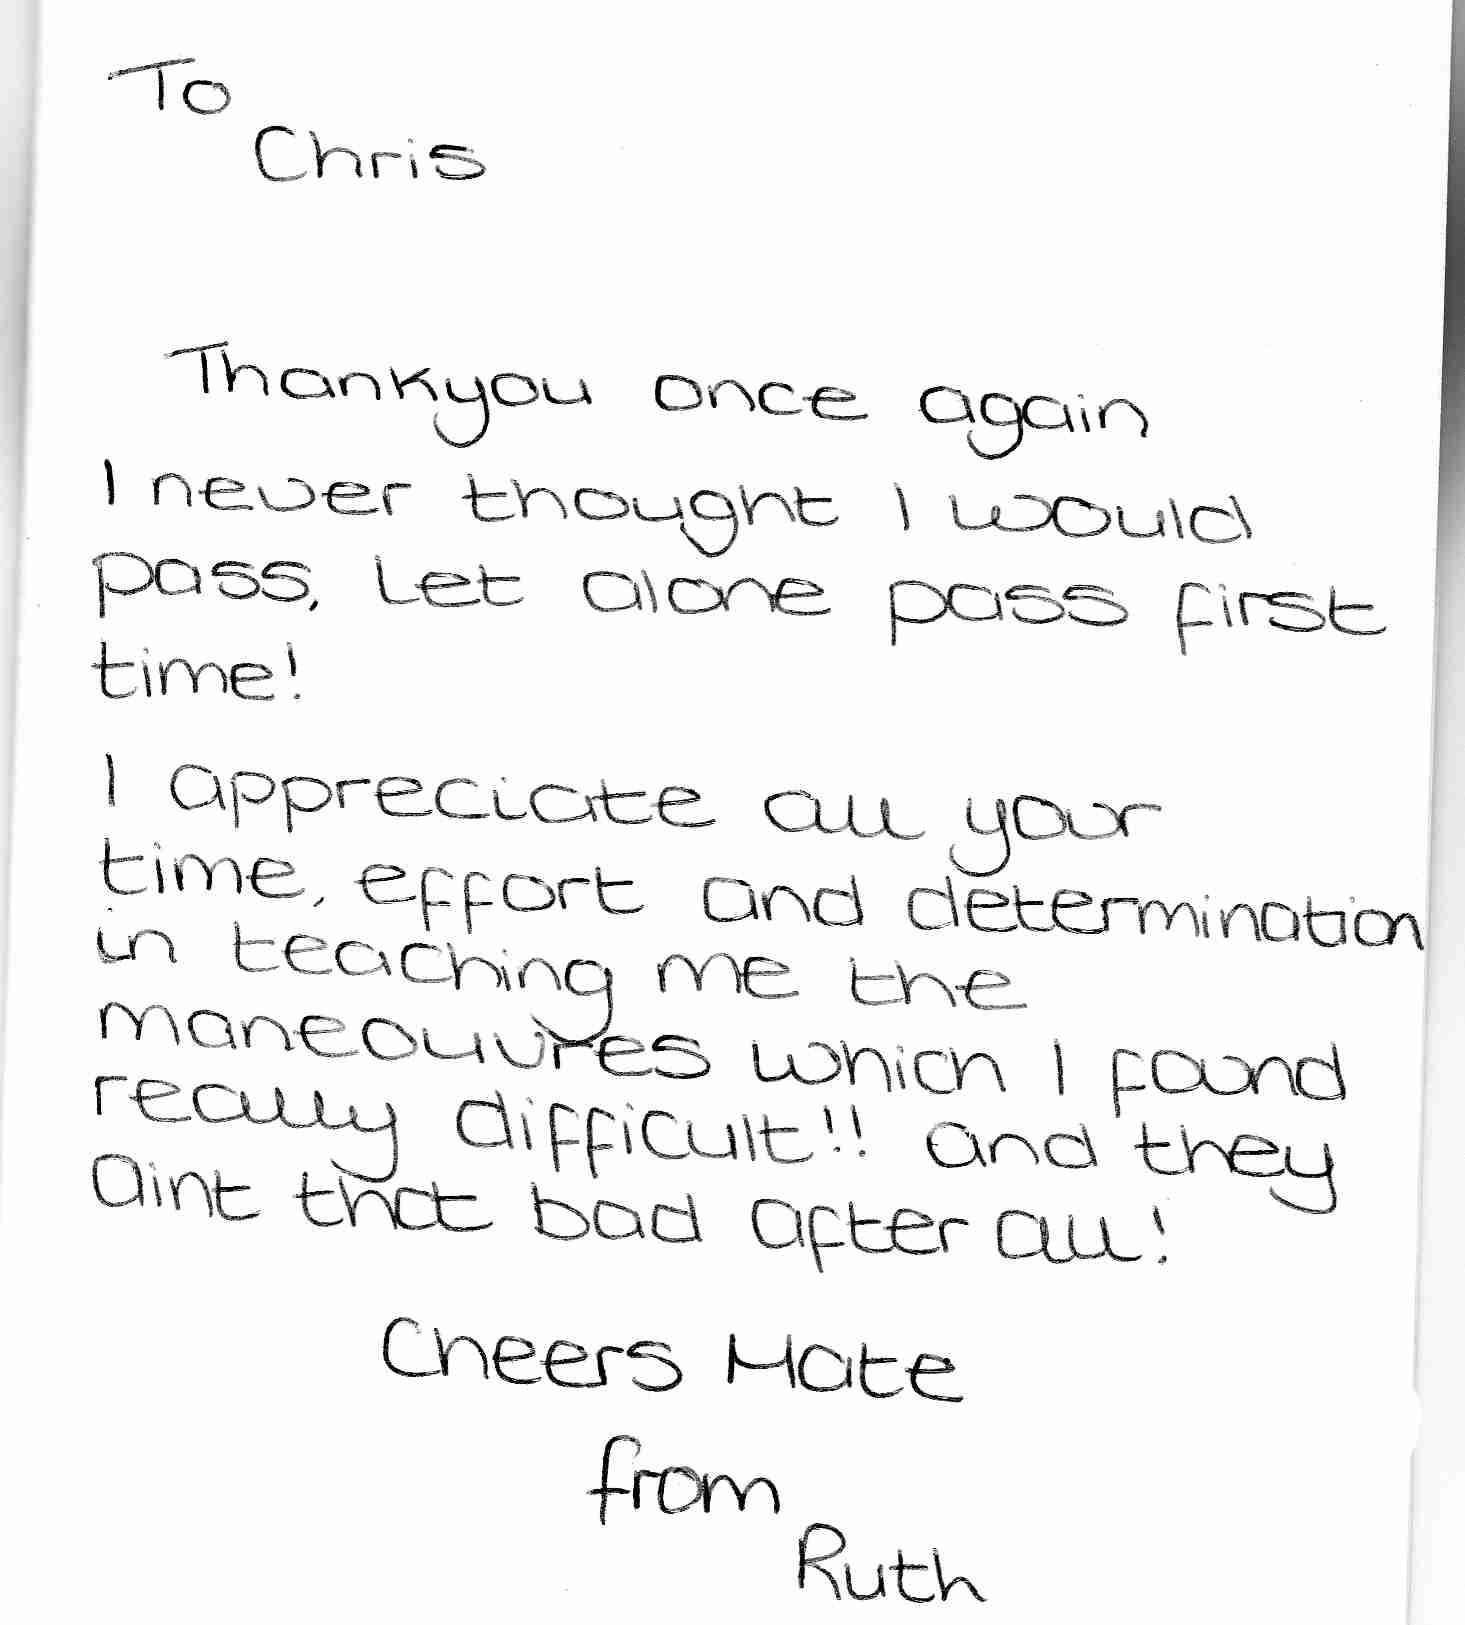 To
Chris
Thankyou once again
I never thought I would
pass, let alone pass first
time!
I appreciate all your
time, effort and determination
in teaching me the
maneouvres which I found
really difficult!! and they
aint that bad after all!
Cheers Mate
from
Ruth